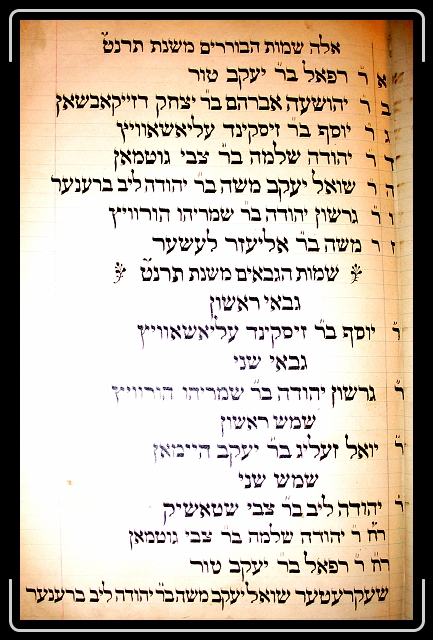 אלה שמות הבוררים משנת תרנ״ט
א ר׳ רפאל בר׳ יעקב טור
ב ר׳ יהושעה אברהם בר׳ יצחק דזייקאבשאץ
ג ר׳ יוסף בר׳ זיסקינד עליאשאוויץ
ד ר׳ יהודה שלמה בר׳ צבי גוטמאן
ה ר׳ שואל יעקב משה בר׳ יהודה ליב ברענער
ו ר׳ גרשון יהודה בר׳ שמריהו הורוויץ
ז ר׳ משה בר׳ אליעזר לעשער
שמות הגבאים משנת תרנ״ט
גבאי ראשון
ר׳ יוסף בר׳ זיסקינד עליאשאוויץ
גבאי שני
ר׳ גרשון יהודה בר׳ שמריהו הורוויץ
שמש ראשון
ר׳ יואל זעליג בר׳ יעקב היימאן
שמש שני
ר׳ יהודה ליב בר׳ צבי שטאשיק
רח ר׳ יהודה שלמה בר׳ צבי גוטמאן
רח ר׳ רפאל בר׳ יעקב טור
שעקרעטער שואל יעקב משה בר׳ יהודה ליב ברענער